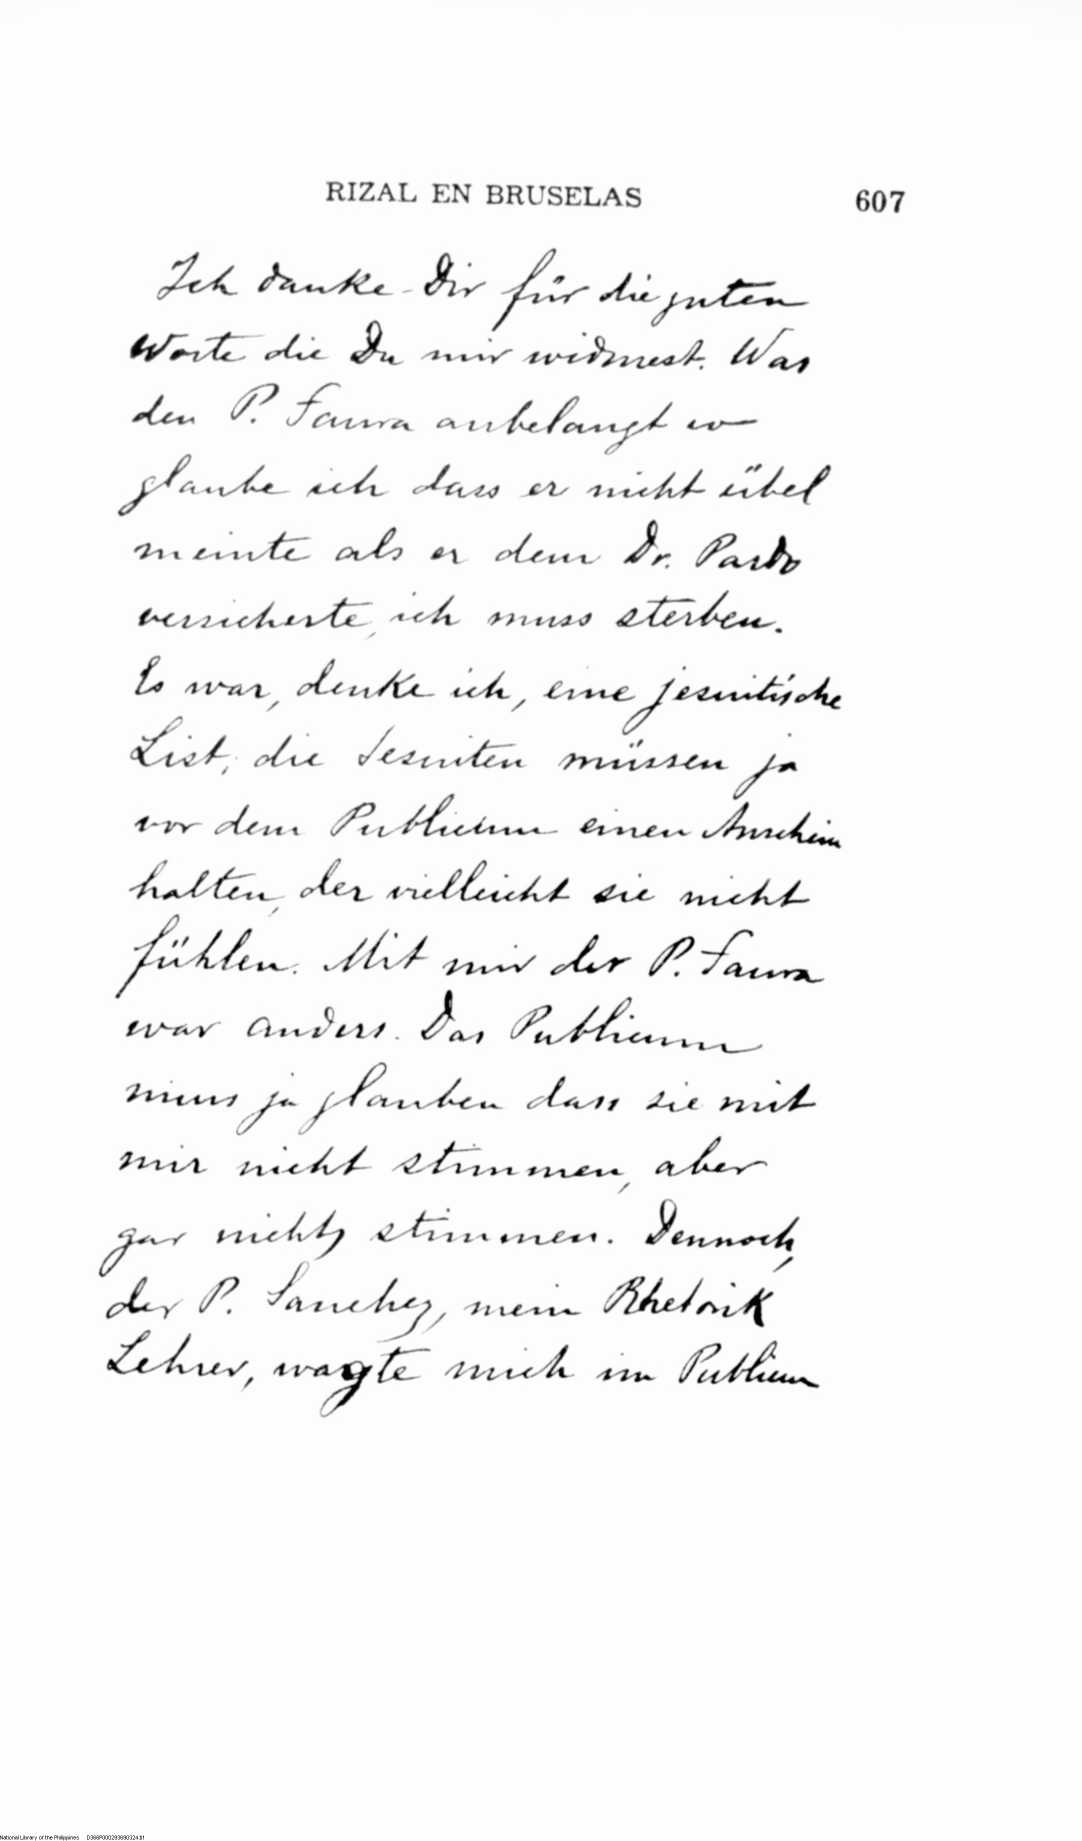 RIZAL EN BRUSELAS 607
Ich danke Dir für die guten
Worte die Du mir widmest. Was
den P. Faura anbelangt so
glaube ich dass er nicht übel
meinte als er dem Dr. Pardo
versicherte, ich muss sterben.
Es war, denke ich, eine jesuitische
List; die Jesuiten müssen ja
vor dem Publicum einen Anschein
halten, der vielleicht sie nicht
fühlen. Mit mir der P. Faura
war anders. Das Publicum
muss ja glauben dass sie mit
mir nicht stimmen, aber
gar nichts stimmen. Dennoch,
der P. Sanchez, mein Rhetorik
Lehrer, wagte mich im Publicum
National Library of the Philippines